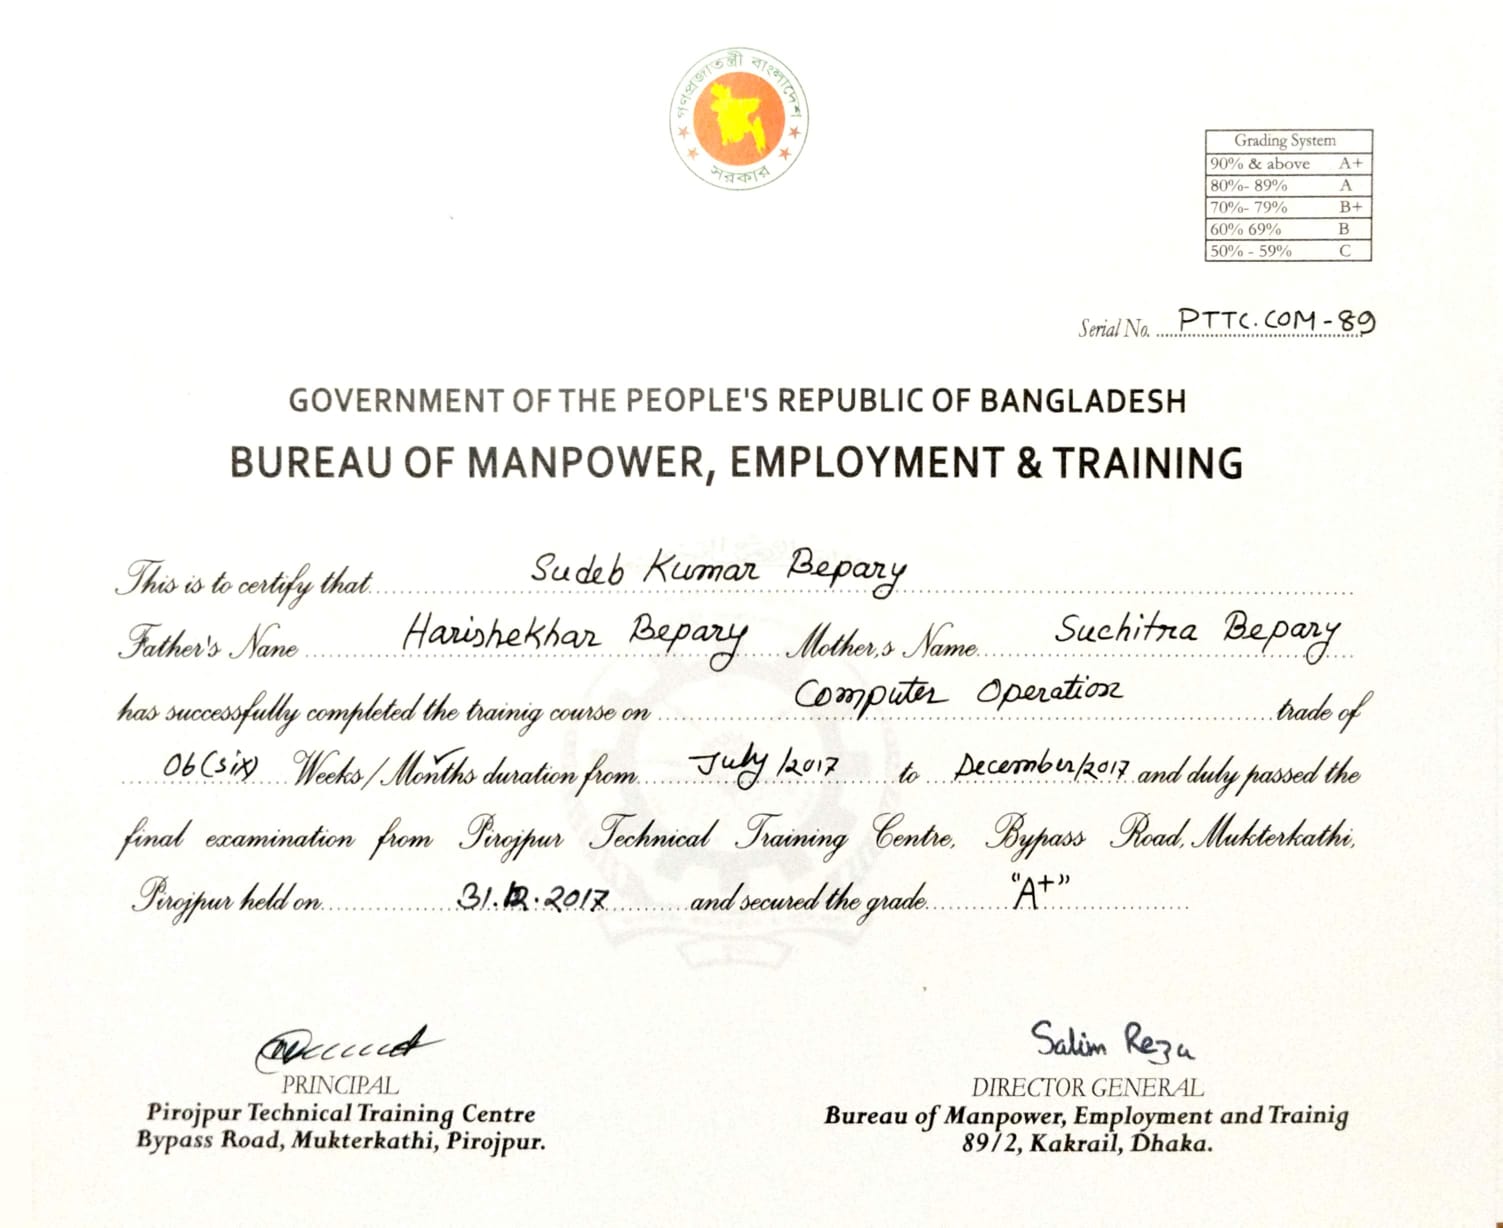 গণপ্রজাতন্ত্রী বাংলাদেশ
সরকার
Grading System
90% & above A+
80%- 89% A
70%- 79% B+
60% 69% B
50% - 59% C
Serial No. PTTC.COM-89
GOVERNMENT OF THE PEOPLE'S REPUBLIC OF BANGLADESH
BUREAU OF MANPOWER, EMPLOYMENT & TRAINING
This is to certify that Sudeb Kumar Bepary
Father's Nane Harishekhar Bepary Mother,s Name Suchitra Bepary
has successfully completed the trainig course on Computer Operation trade of
06(six) Weeks/Months duration from July/2017 to December/2017 and duly passed the
final examination from Pirojpur Technical Training Centre, Bypass Road, Mukterkathi,
Pirojpur held on 31.12.2017 and secured the grade "A+"
Salim Reza
PRINCIPAL
Pirojpur Technical Training Centre
Bypass Road, Mukterkathi, Pirojpur.
DIRECTOR GENERAL
Bureau of Manpower, Employment and Trainig
89/2, Kakrail, Dhaka.